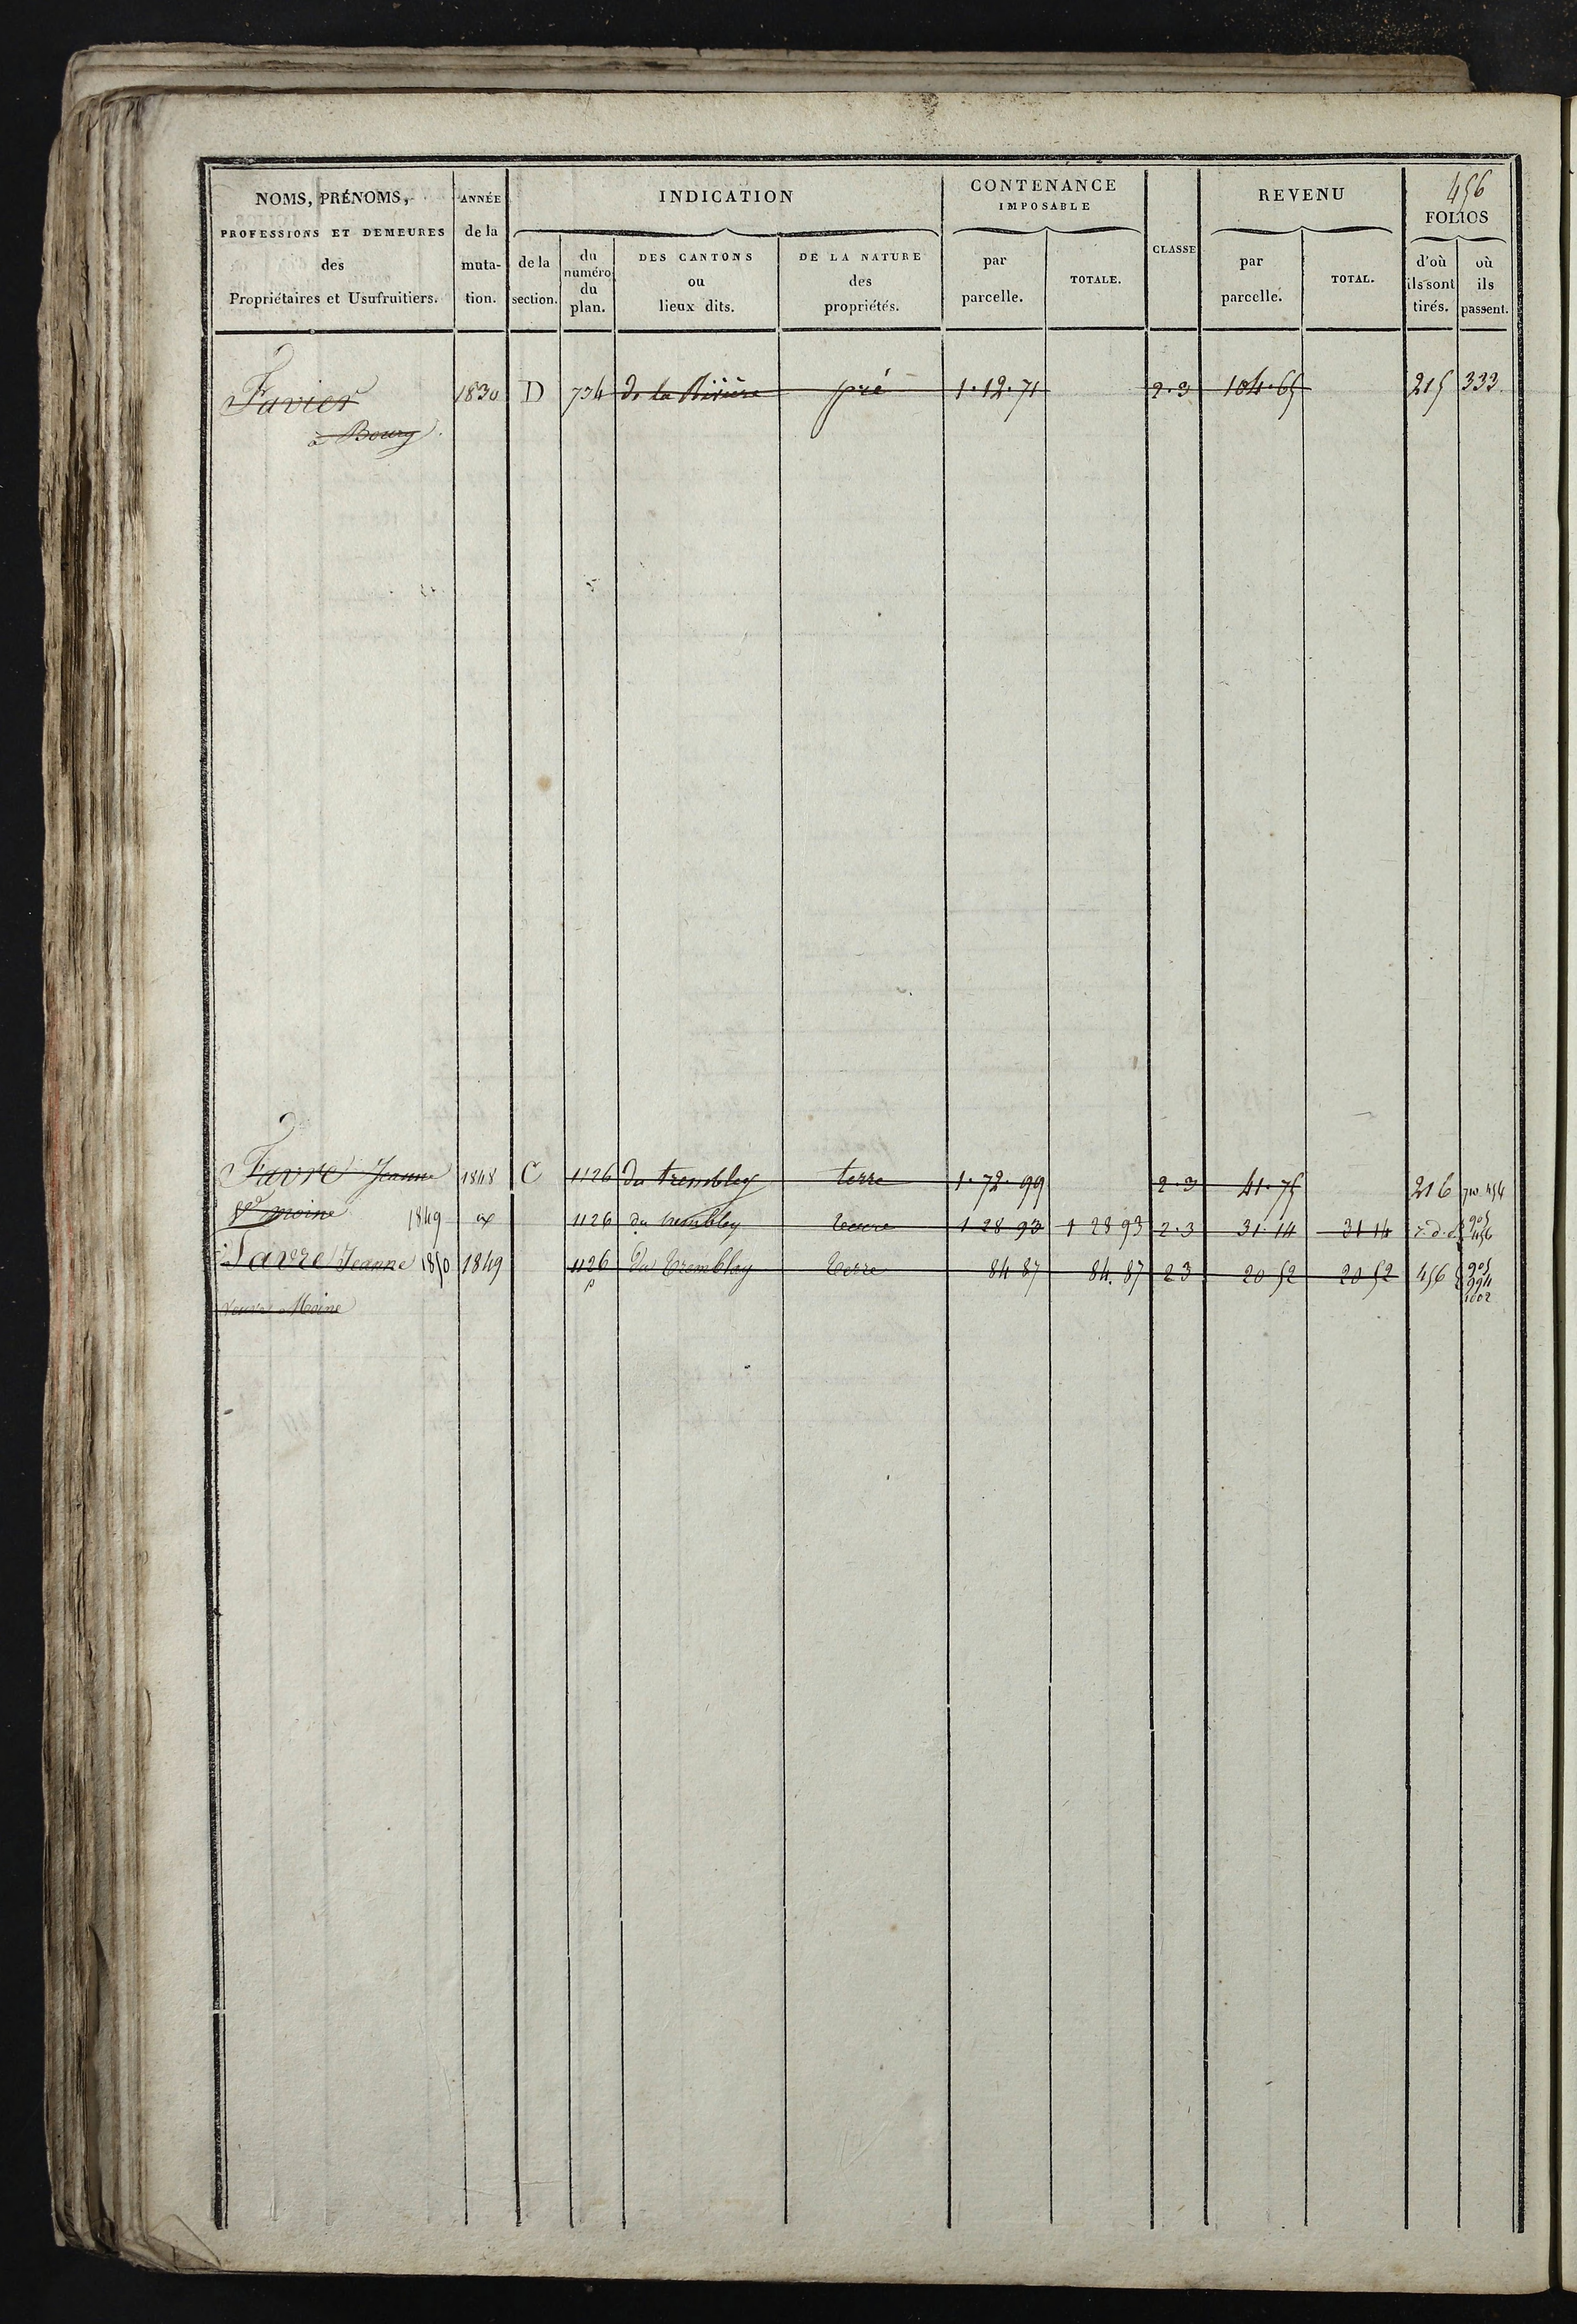 456
NOMS, PRÉNOMS, PROFESSIONS ET DEMEURES des Propriétaires et Usufruitiers.
ANNÉE de la muta-tion.
INDICATION
de la section.
du numéro du plan.
DES CANTONS ou lieux dits.
DE LA NATURE des propriétés.
CONTENANCE IMPOSABLE
par parcelle.
TOTALE.
CLASSE
REVENU
par parcelle.
TOTAL.
FOLIOS
d'où ils sont tirés.
où ils passent.
Favier 1830 D 734 de la Rivière pré 1.12.71 2.3 104.65 215 333
à Bourg
Favre Jeanne 1848 C 1126 du trembley terre 1.72.99 2.3 41.75 216 454
ve moine 1849 1126 du trembley terre 1 28 93 1 28 93 2.3 31.14 31 14 905 456
Favre Jeanne 1850 1849 1126 p du Tremblay Terre 84 87 84.87 2 3 20 52 20 52 456 905 394 1002
veuve Moine